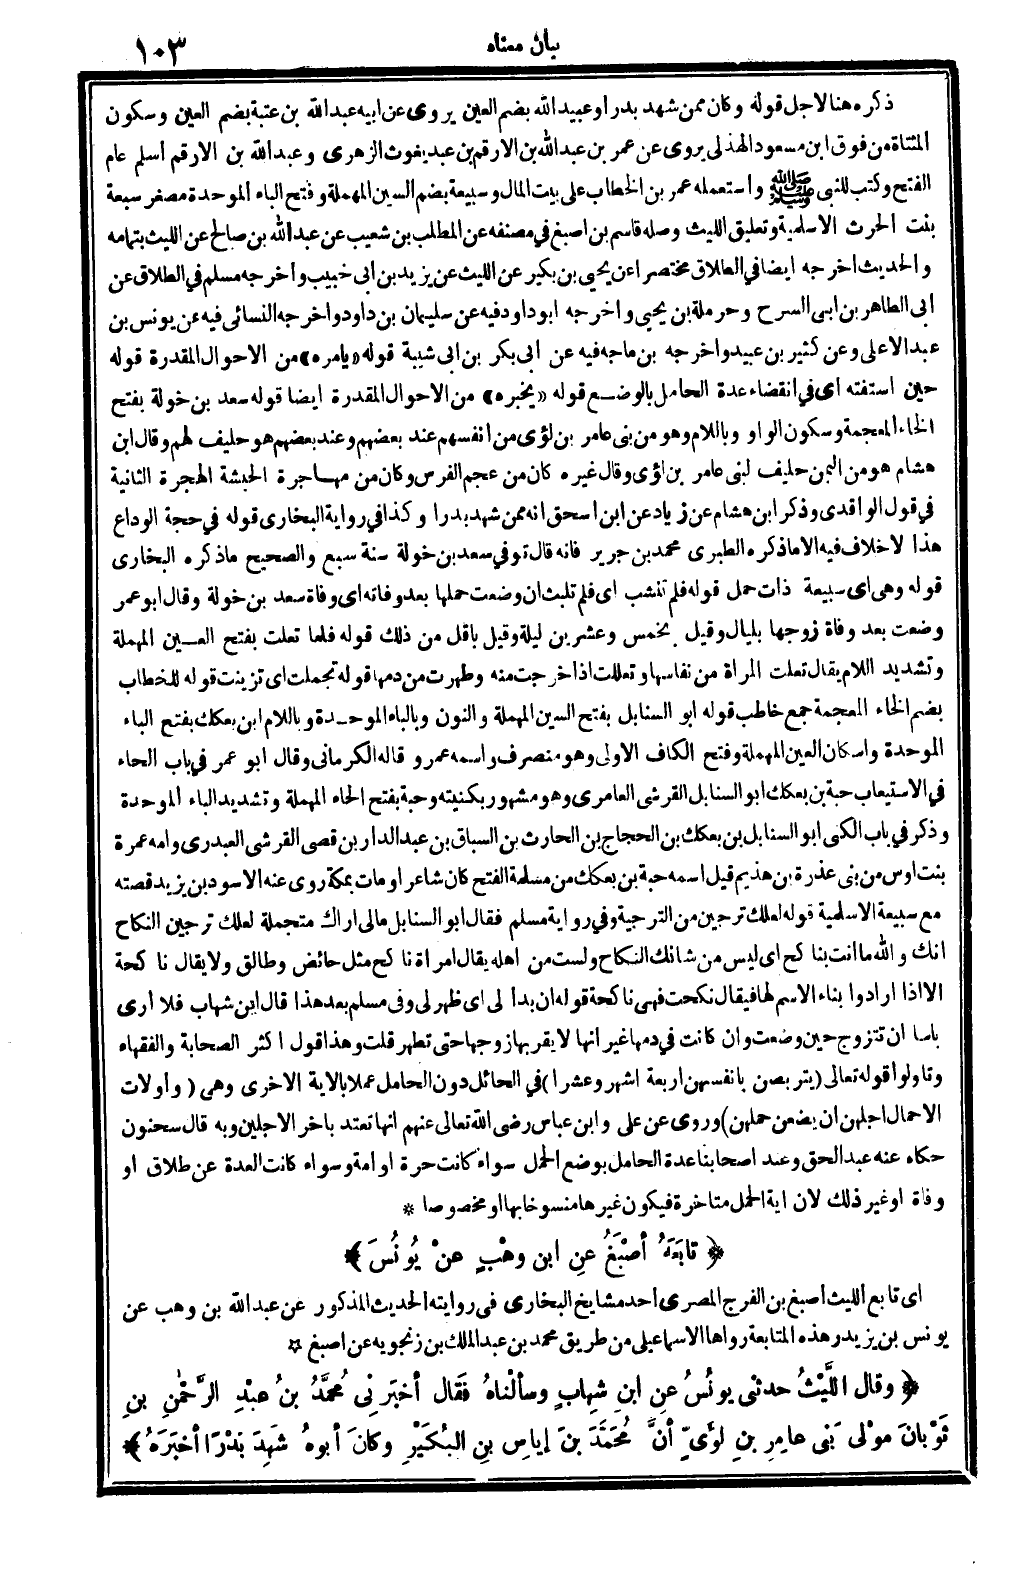 بيان معناه ١٠٣
ذكره هنا لاجل قوله وكان ممن شهد بدرا وعبيد الله بضم العين يروى عن ابيه عبدالله بن عتبة بضم العين وسكون
المثناة من فوق ابن مسعود الهذلى يروى عن عمر بن عبدالله بن الارقم بن عبد يغوث الزهرى وعبد الله بن الارقم أسلم عام
الفتح وكتب للنبى ﷺ واستعمله عمر بن الخطاب على بيت المال وسبيعة بضم السين المهملة وفتح الباء الموحدة مصغر سبعة
بنت الحرث الاسلمية وتعليق الليث وصله قاسم بن اصبغ فى مصنفه عن المطلب بن شعيب عن عبدالله بن صالح عن الليث بتمامه
والحديث اخرجه ايضا فى الطلاق مختصرا عن يحيى بن بكير عن الليث عن يزيد بن ابى خبيب وأخرجه مسلم فى الطلاق عن
ابى الطاهر بن ابى السرح وحرملة بن يحيى واخرجه ابو داود فيه عن سليمان بن داود واخرجه النسائى فيه عن يونس بن
عبد الاعلى وعن كثير بن عبيد واخرجه بن ماجه فيه عن ابى بكر بن ابى شيبة قوله «يامره» من الاحوال المقدرة قوله
حين استفته اى فى انقضاء عدة الحامل بالوضع قوله «يخبره» من الاحوال المقدرة ايضا قوله سعد بن خولة بفتح
الخاء المعجمة وسكون الواو وباللام وهو من بنى عامر بن لؤى من انفسهم عند بعضهم وعند بعضهم هو حليف لهم وقال ابن
هشام هو من اليمن حليف لبنى عامر بن لؤى وقال غيره كان من عجم الفرس وكان من مهاجرة الحبشة الهجرة الثانية
فى قول الواقدى وذكر ابن هشام عن زياد عن ابن اسحق انه ممن شهد بدرا وكذا فى رواية البخارى قوله فى حجة الوداع
هذا لاخلاف فيه الا ما ذكره الطبرى محمد بن جرير فانه قال توفى سعد بن خولة سنة سبع والصحيح ماذكره البخارى
قوله وهى اى سبيعة ذات حمل قوله فلم تنشب اى فلم تلبث ان وضعت حملها بعد وفاته اى وفاة سعد بن خولة وقال ابو عمر
وضعت بعد وفاة زوجها بليال وقيل بخمس وعشرين ليلة وقيل باقل من ذلك قوله فلما تعلت بفتح العين المهملة
وتشديد اللام يقال تعلت المراة من نفاسها وتعللت اذا خرجت منه وطهرت من دمها قوله تجملت اى تزينت قوله للخطاب
بضم الخاء المعجمة جمع خاطب قوله ابو السنابل بفتح السين المهملة والنون وبالباء الموحدة وباللام ابن بعكك بفتح الباء
الموحدة واسكان العين المهملة وفتح الكاف الاولى وهو منصرف واسمه عمرو قاله الكرمانى وقال ابو عمر فى باب الحاء
فى الاستيعاب حبة بن بعكك ابو السنابل القرشى العامرى وهو مشهور بكنيته وحبة بفتح الحاء المهملة وتشديد الباء الموحدة
وذكر فى باب الكنى ابو السنابل بن بعكك بن الحجاج بن الحارث بن السباق بن عبد الدار بن قصى القرشى العبدرى وامه عمرة
بنت اوس من بنى عذرة بن هذيم قيل اسمه حبة بن بعكك من مسلمة الفتح كان شاعرا ومات بمكة روى عنه الاسود بن يزيد قصته
مع سبيعة الاسلمية قوله لعلك ترجين من الترجية وفى رواية مسلم فقال ابو السنابل مالى اراك متجملة لعلك ترجين النكاح
انك والله ما انت بناكح اى ليس من شانك النكاح ولست من اهله يقال امراة ناكح مثل حائض وطالق ولا يقال ناكحة
الا اذا ارادوا بناء الاسم لها فيقال نكحت فهى ناكحة قوله ان بدا لى اى ظهر لى وفى مسلم بعد هذا قال ابن شهاب فلا أرى
باسا ان تتزوج حين وضعت وان كانت فى دمها غير انها لا يقربها زوجها حتى تطهر قلت وهذا قول اكثر الصحابة والفقهاء
وتاولوا قوله تعالى (يتربصن بانفسهن اربعة اشهر وعشرا) فى الحائل دون الحامل عملا بالاية الاخرى وهى (وأولات
الاحمال اجلهن ان يضعن حملهن) وروى عن على وابن عباس رضى الله تعالى عنهم انها تعتد باخر الاجلين وبه قال سحنون
حكاه عنه عبد الحق وعند اصحابنا عدة الحامل بوضع الحمل سواء كانت حرة او امة وسواء كانت العدة عن طلاق او
وفاة او غير ذلك لان اية الحمل متاخرة فيكون غيرها منسوخا بها او مخصوصا *
﴿ تَابَعَهُ أصْبَغُ عنِ ابنِ وهْبٍ عنْ يُونُسَ ﴾
اى تابع الليث أصبغ بن الفرج المصرى أحد مشايخ البخارى فى روايته الحديث المذكور عن عبدالله بن وهب عن
يونس بن يزيد وهذه المتابعة رواها الاسماعيلى من طريق محمد بن عبد الملك بن زنجويه عن اصبغ *
﴿ وقال اللَّيْثُ حدثنى يونُسُ عنِ ابنِ شِهابٍ وسألْناهُ فَقال أخبَرنِى مُحمَّدُ بنُ عبْدِ الرَّحْمٰنِ بنِ
ثَوْبانَ موْلى بَنى عامِرِ بنِ لوَّىٍّ أنَّ مُحَمَّدَ بنَ إياسِ بنِ البُكَيْرِ وكانَ أبوهُ شَهِدَ بَدْرًا أخبَرَهُ ﴾